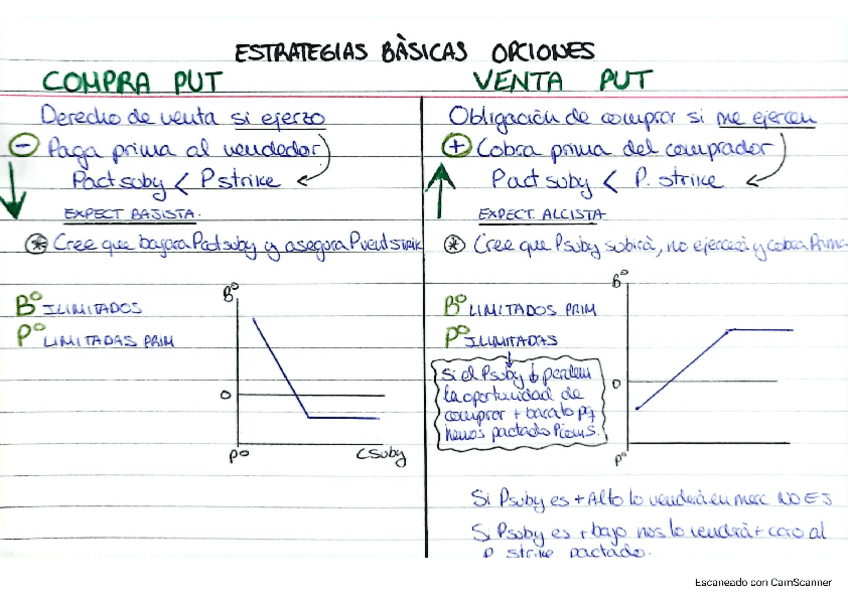 ESTRATEGIAS BÀSICAS OPCIONES
COMPRA PUT
Derecho de venta si ejerzo
- Paga prima al vendedor
Pactsuby < Pstrike
EXPECT BAJISTA.
* Cree que bajara Pactsuby y asegura Pventstrik
Bº ILIMITADOS
Pº LIMITADAS PRIM
Bº
0
Pº
CSuby
VENTA PUT
Obligaciòn de comprar si me ejercen
+ Cobra prima del comprador
Pactsuby < P. strike
EXPECT ALCISTA
* Cree que Psuby subirà, no ejercerà y cobra Prima
Bº LIMITADOS PRIM
Pº ILIMITADAS
Si el Psuby ↓ perdem
la oportunidad de
comprar + barato pq
hemos pactado
Bº
0
Pº
Si Psuby es + Alto lo venderà en merc NO EJ
Si Psuby es + bajo nos lo vendrà + caro al
P strike pactado.
Escaneado con CamScanner